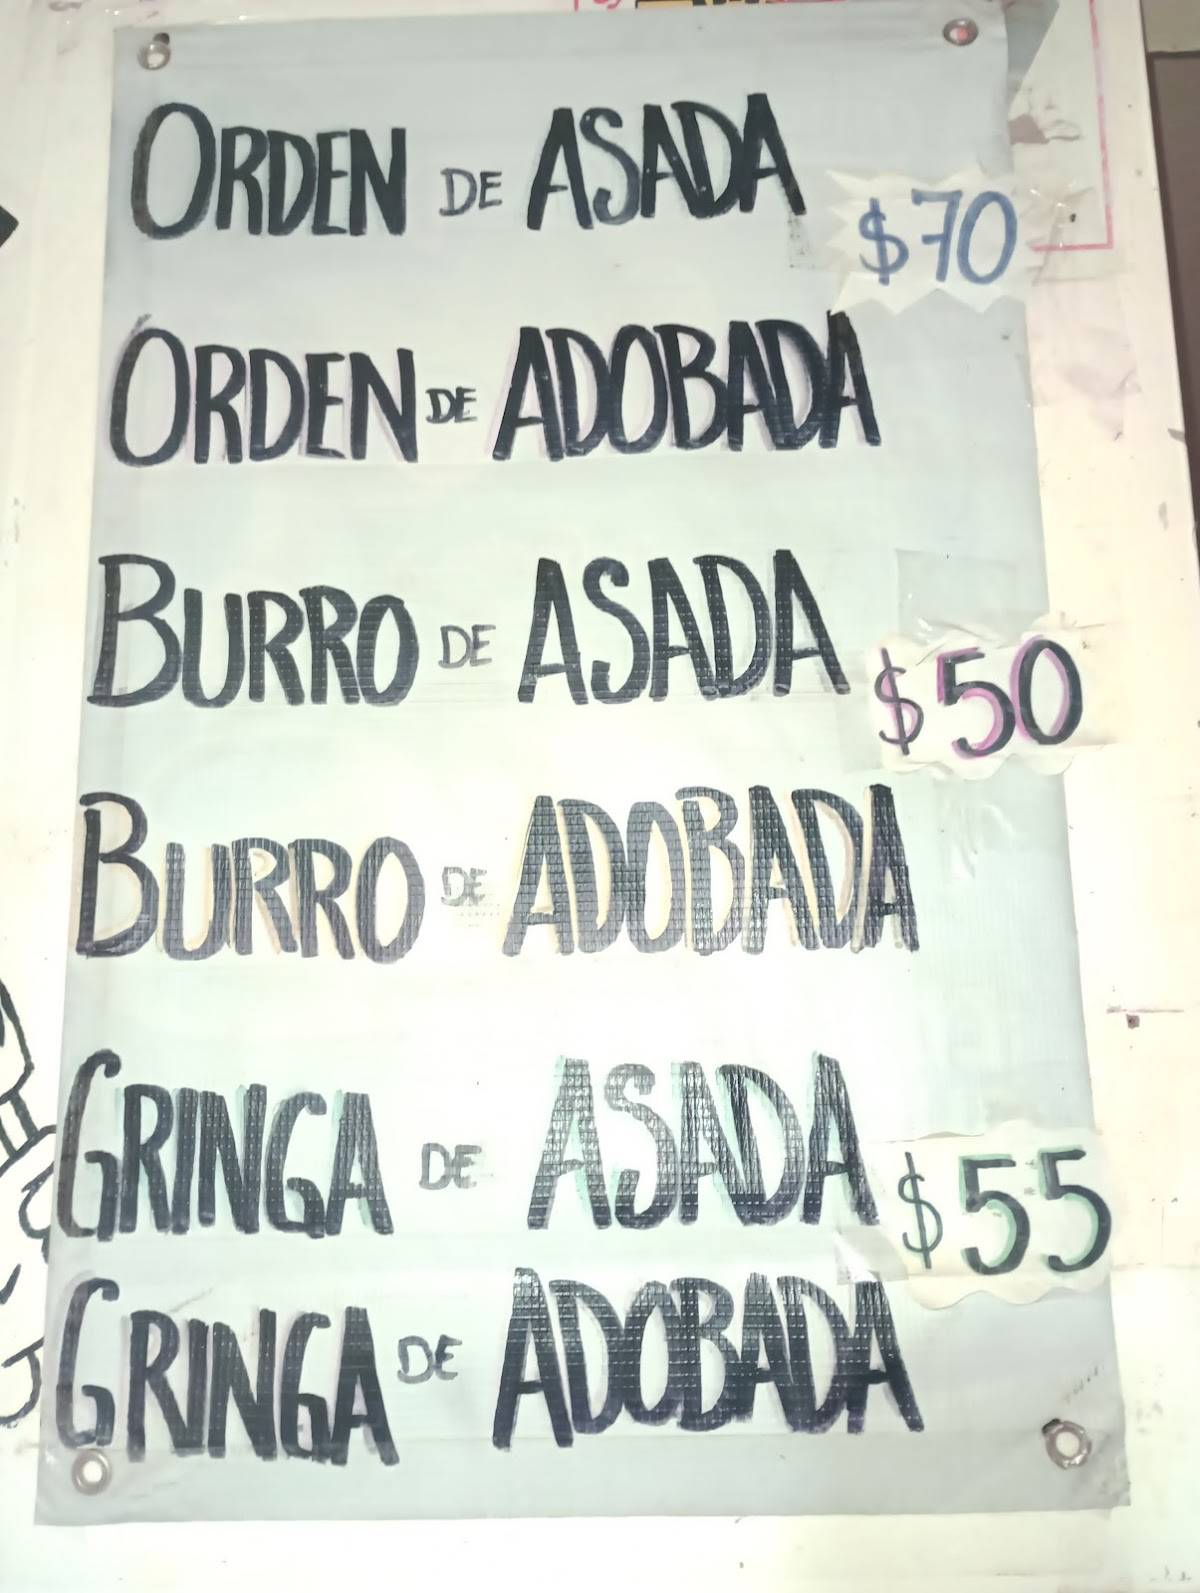 ORDEN DE ASADA $70
ORDEN DE ADOBADA
BURRO DE ASADA $50
BURRO DE ADOBADA
GRINGA DE ASADA $55
GRINGA DE ADOBADA